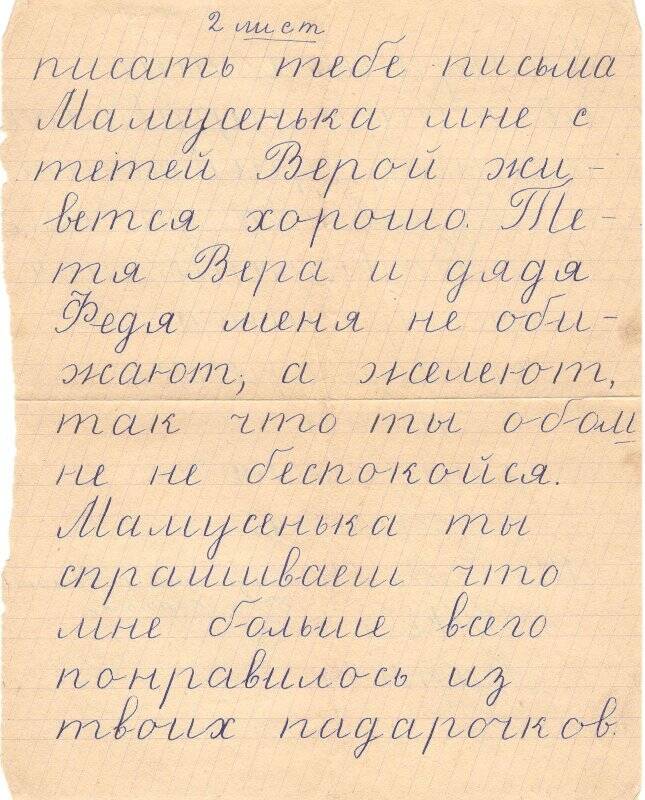 2 лист
писать тебе письма
Мамусенька мне с
тетей Верой жи-
вется хорошо. Те-
тя Вера и дядя
Федя меня не оби-
жают, а желеют,
так что ты обом
не не беспокойся.
Мамусенька ты
спрашиваеш что
мне больше всего
понравилось из
твоих падарочков.